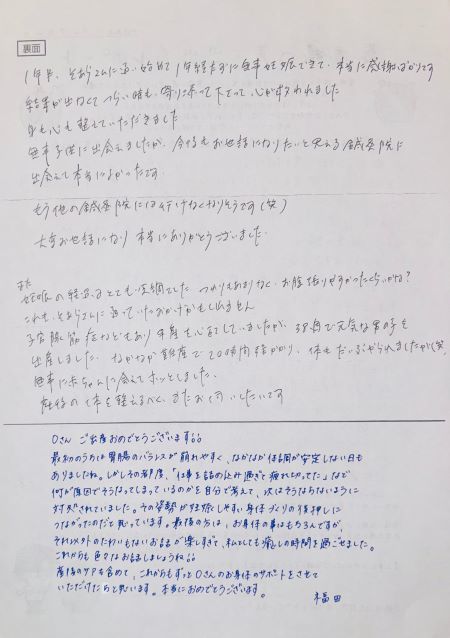 裏面
1年半、そあらさんに通い始めて1年経たずに無事妊娠できて、本当に感謝ばかりです
結果が出なくてつらい時も、寄り添って下さって心がすくわれました
身も心も整えていただきました
無事子供に出会えましたが、今後もお世話になりたいと思える鍼灸院に
出会えて本当によかったです。
もう他の鍼灸院には行けなくなりそうです(笑)
大変お世話になり本当にありがとうございました。
また
妊娠の経過はとても順調でした つわりもあまりなく、お腹張りやすかったくらいかな?
これも、そあらさんに通っていたおかげかもしれません
子宮腺筋症などもあり早産も心配していましたが、38週で元気な男の子を
出産しました。なかなか難産で20時間強かかり、体もだいぶやられましたが(笑)
無事に赤ちゃんに会えてホッとしました。
産後の体を整えるべく、またお伺いしたいです
Oさん ご出産おめでとうございます
最初のうちは胃腸のバランスが崩れやすく、なかなか体調が安定しない日も
ありましたね。しかしその都度、「仕事を詰め込み過ぎて疲れちゃってた」などで
何が原因でそうなってしまっているのかを自分で考えて、次はそうならないように
対処されていました。その姿勢が妊娠しやすい身体づくりの後押しに
つながったのだと思っています。最後の方は、お身体の事はもちろんですが、
それ以外のたわいもないお話が楽しすぎて、私としても癒しの時間を過ごせました。
これからも色々なお話しましょうね
産後のケアも含めて、これからもずっとOさんのお身体のサポートをさせて
いただけたらと思います。本当におめでとうございます。
福田